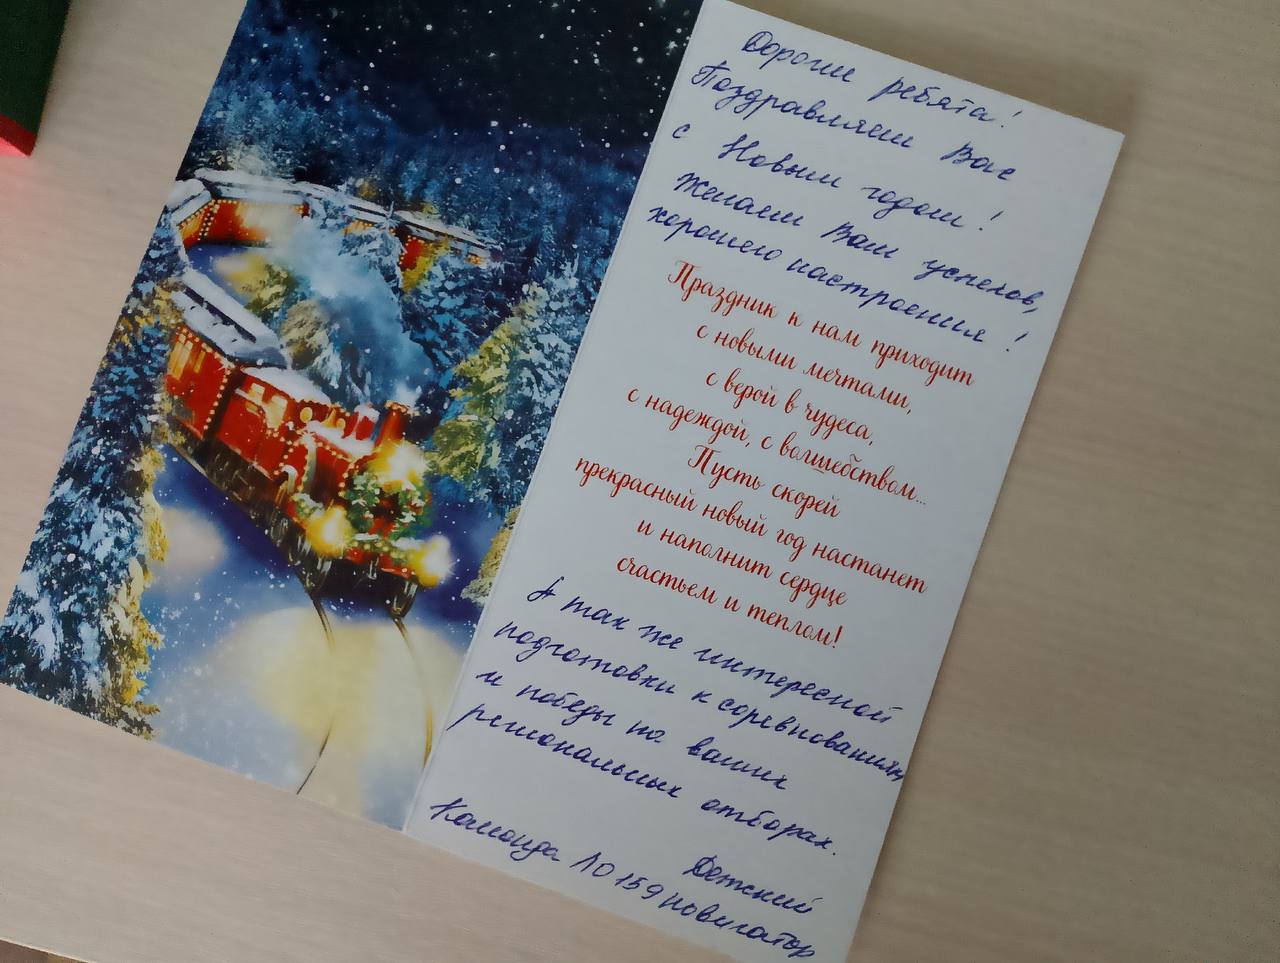 Дорогие ребята!
Поздравляем Вас
с Новым годом!
Желаем Вам успехов,
хорошего настроения!
Праздник к нам приходит
с новыми мечтами,
с верой в чудеса,
с надеждой, с волшебством...
Пусть скорей
прекрасный новый год настанет
и наполнит сердце
счастьем и теплом!
А так же интересной
подготовки к соревнованиям
и победы на ваших
региональных отборах.
Детский
Команда ЛО 159 Навигатор